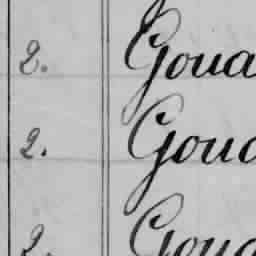 2. Goua
2. Gouc
2. Goug